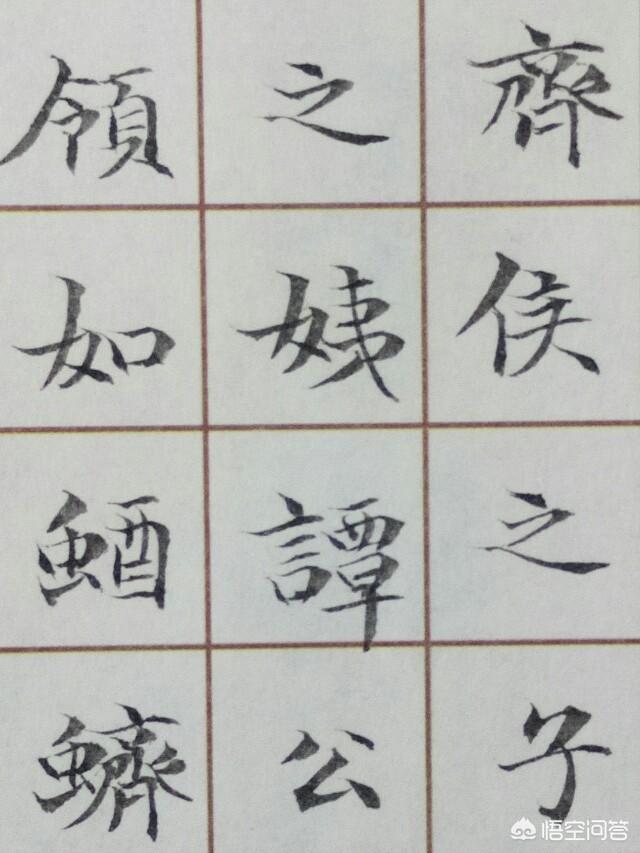 齊侯之子
之姨譚公
領如蝤蠐
悟空问答